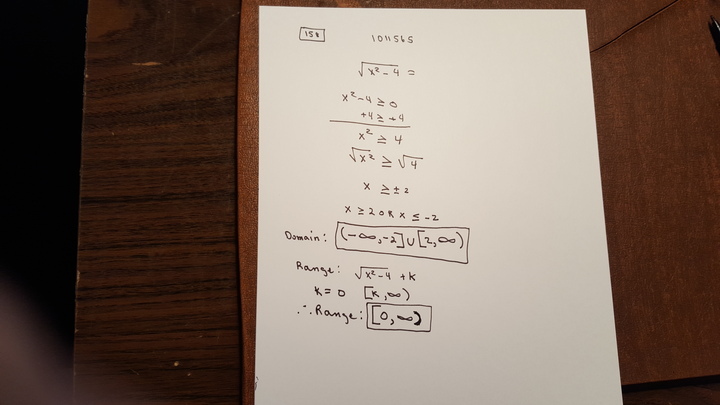 158
1011565
√x²-4 =
x²-4 ≥ 0
+4 ≥ +4
x² ≥ 4
√x² ≥ √4
x ≥ ±2
x ≥ 2 OR x ≤ -2
Domain: (-∞,-2]∪[2,∞)
Range: √x²-4 +K
K=0 [K,∞)
∴ Range: [0,∞)